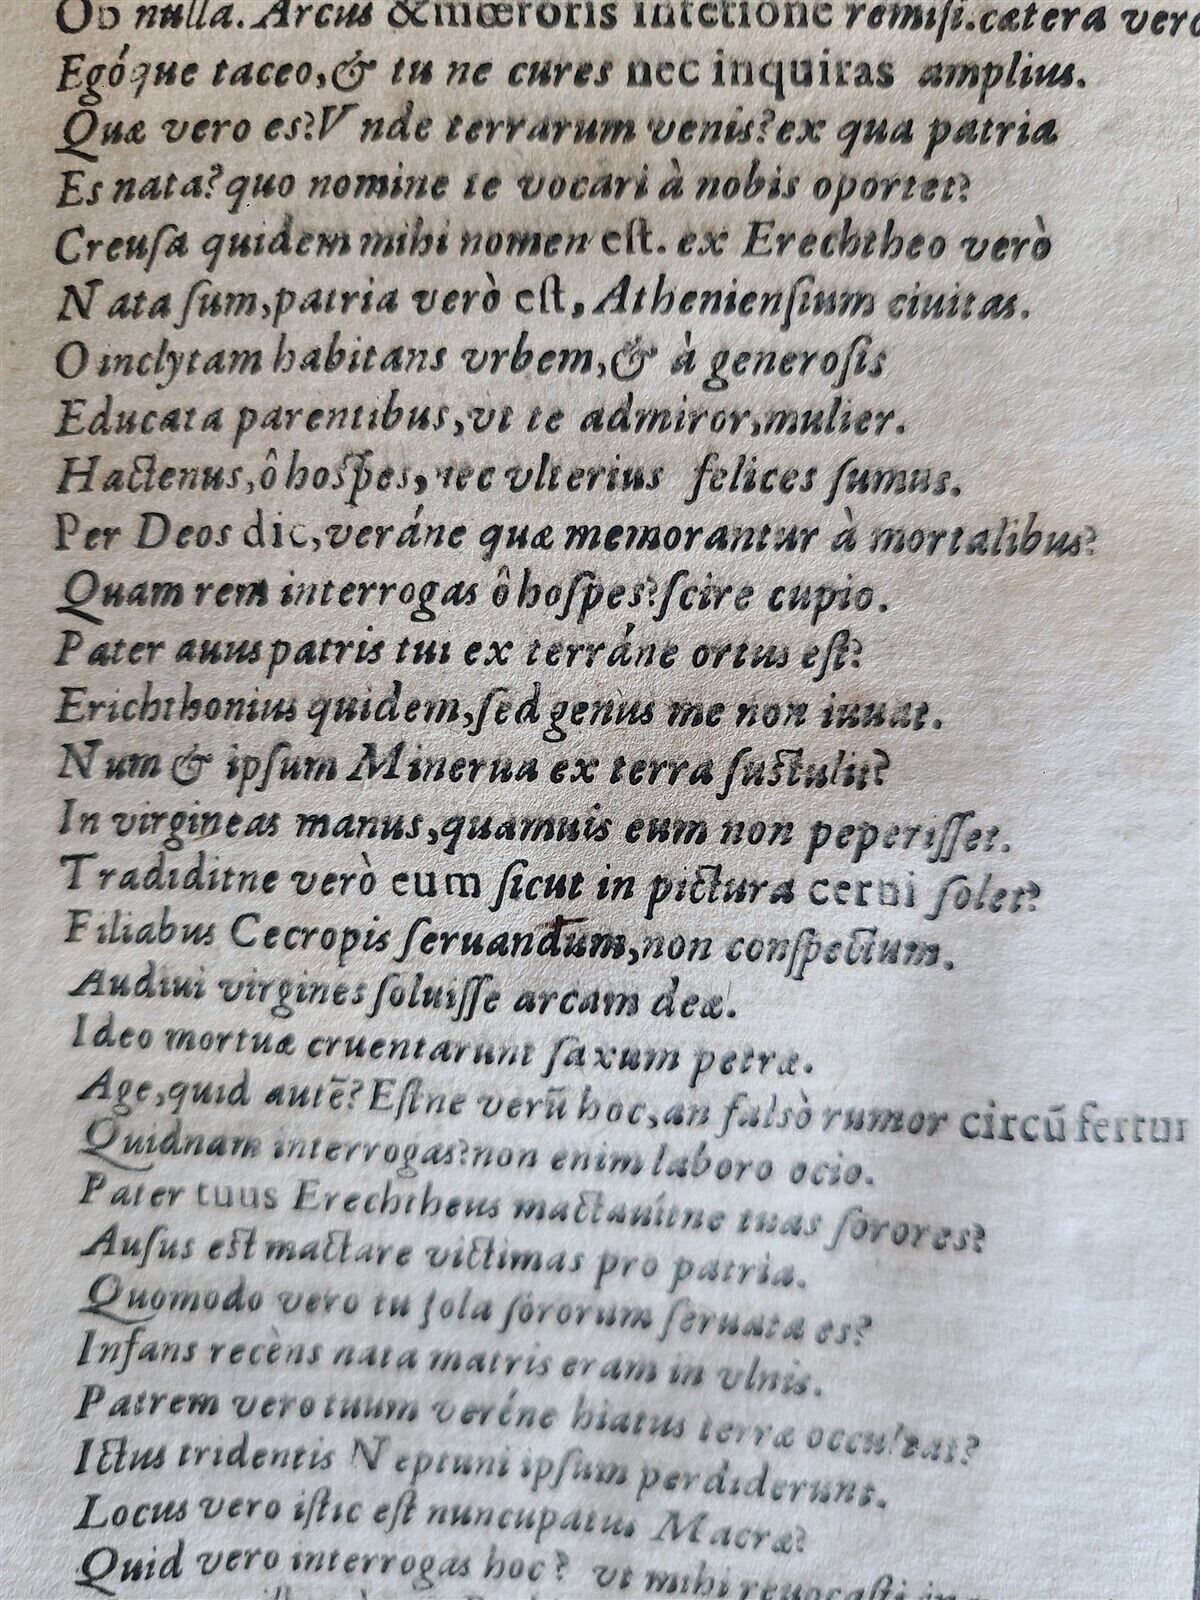 Ob nulla. Arcus & mœroris intẽtione remisi. cætera vero
Egóque taceo, & tu ne cures nec inquiras amplius.
Quæ vero es? Vnde terrarum venis? ex qua patria
Es nata? quo nomine te vocari à nobis oportet?
Creuſa quidem mihi nomen eſt. ex Erechtheo verò
Nata ſum, patria verò eſt, Athenienſium ciuitas.
O inclytam habitans vrbem, & à generoſis
Educata parentibus, vt te admiror, mulier.
Hactenus, ô hoſpes, nec vlterius felices ſumus.
Per Deos dic, veráne quæ memorantur à mortalibus?
Quam rem interrogas ô hoſpes? ſcire cupio.
Pater auus patris tui ex terráne ortus eſt?
Erichthonius quidem, ſed genus me non iuuat.
Num & ipſum Minerua ex terra ſuſtulit?
In virgineas manus, quamuis eum non peperiſſet.
Tradiditne verò eum ſicut in pictura cerni ſolet?
Filiabus Cecropis ſeruandum, non conſpectum.
Audiui virgines ſoluiſſe arcam deæ.
Ideo mortuæ cruentarunt ſaxum petræ.
Age, quid autẽ? Eſtne verũ hoc, an falsò rumor circũfertur
Quidnam interrogas? non enim laboro ocio.
Pater tuus Erechtheus mactauítne tuas ſorores?
Auſus eſt mactare victimas pro patria.
Quomodo vero tu ſola ſororum ſeruata es?
Infans recèns nata matris eram in vlnis.
Patrem vero tuum veréne hiatus terræ occultat?
Ictus tridentis Neptuni ipſum perdiderunt.
Locus vero iſtic eſt nuncupatus Macræ?
Quid vero interrogas hoc? vt mihi reuocaſti in